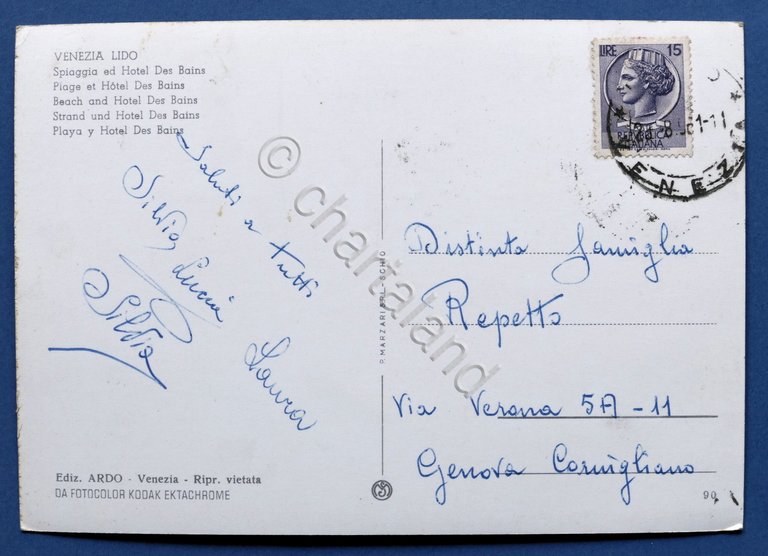 VENEZIA LIDO
Spiaggia ed Hotel Des Bains
Plage et Hôtel Des Bains
Beach and Hotel Des Bains
Strand und Hotel Des Bains
Playa y Hotel Des Bains
Saluti a tutti
Silvia Lucia
Silvia
Laura
Ediz. ARDO - Venezia - Ripr. vietata
DA FOTOCOLOR KODAK EKTACHROME
P. MARZARI S.R.L. - SCHIO
LIRE 15
REPVBBLICA
ITALIANA
VENEZIA
Distinta Famiglia
Repetto
Via Verona 5A - 11
Genova Cornigliano
90
© chartaland